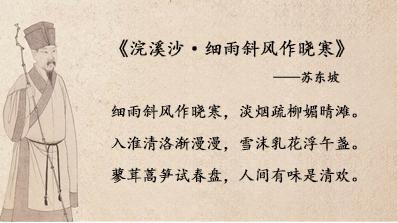 《浣溪沙·细雨斜风作晓寒》
——苏东坡
细雨斜风作晓寒，淡烟疏柳媚晴滩。
入淮清洛渐漫漫，雪沫乳花浮午盏。
蓼茸蒿笋试春盘，人间有味是清欢。